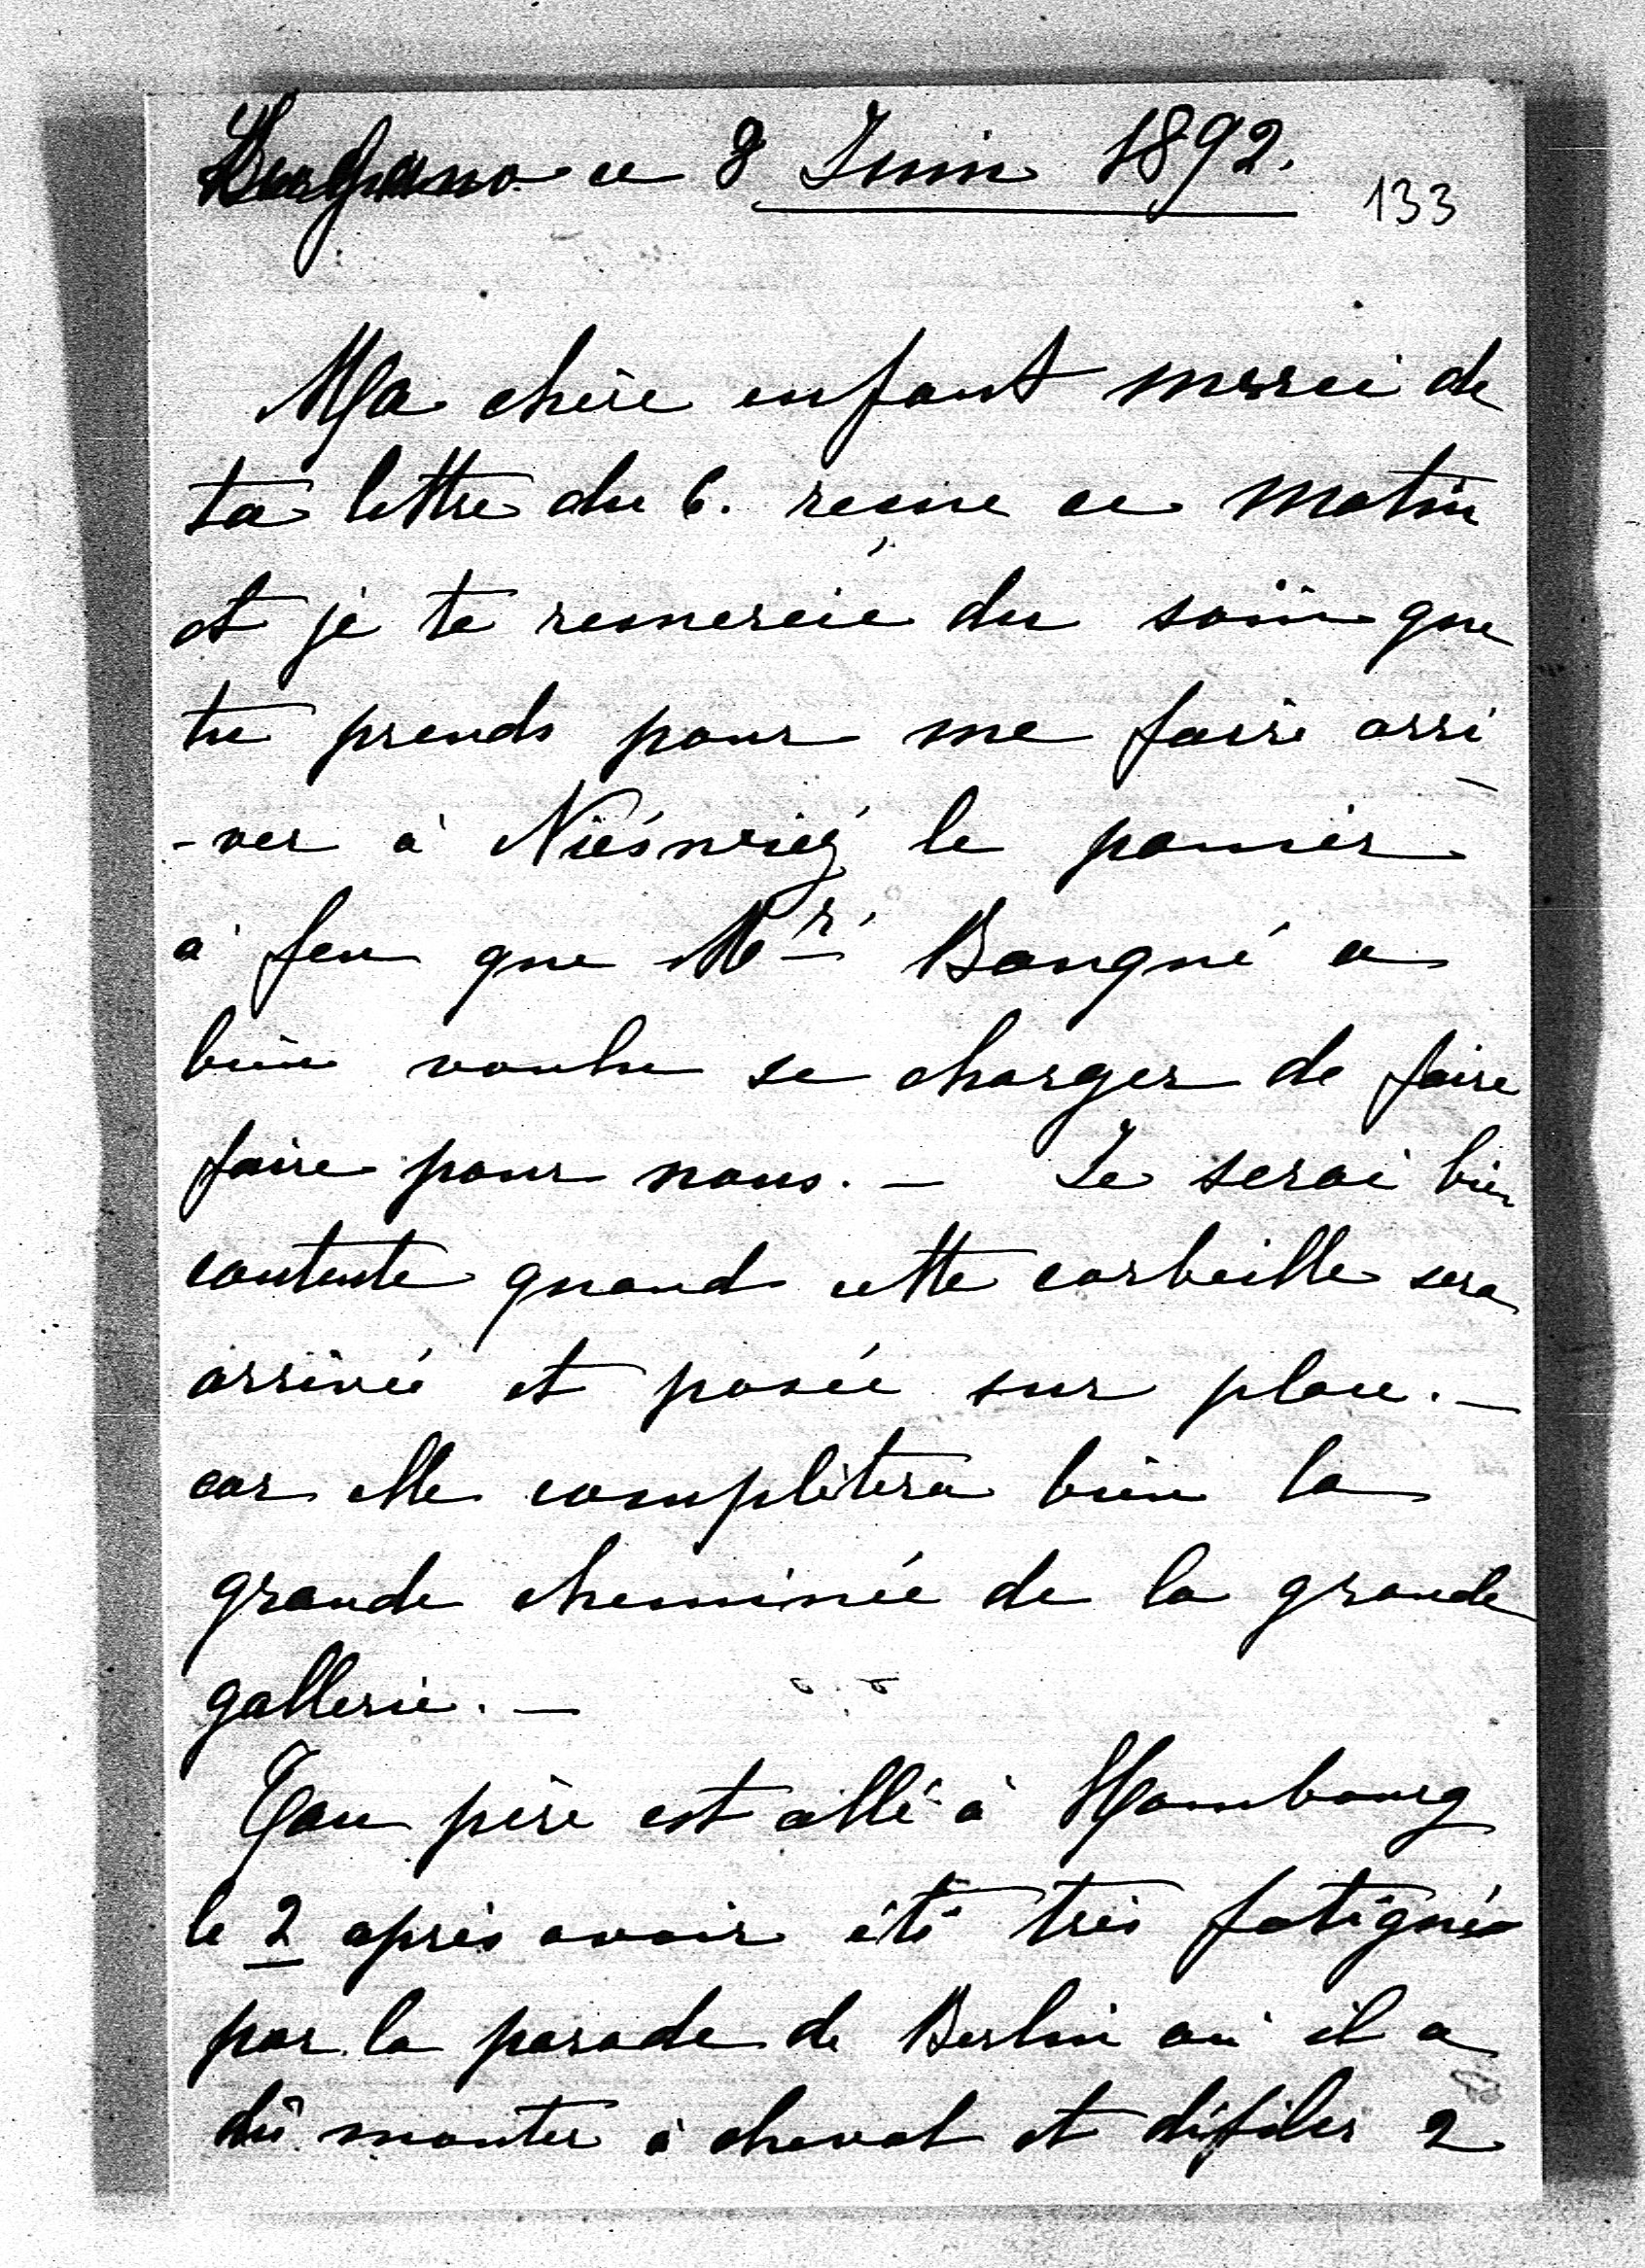 ce 8 Juin 1892.
133
Ma chère enfant merci de
ta lettre du 6. reçue ce matin
et je te remercie du soin que
tu prends pour me faire arri
-ver à Nieśwież le panier
à feu que Mr. Bangné a
bien voulu se charger de faire
faire pour nous. — Je serai bien
contente quand cette corbeille sera
arrivée et posée sur place. —
car elle complètera bien la
grande cheminée de la grande
gallerie. —
Ton père est allé à Hambourg
le 2 après avoir été très fatigué
par la parade de Berlin où il a
dû monter à cheval et défiler 2